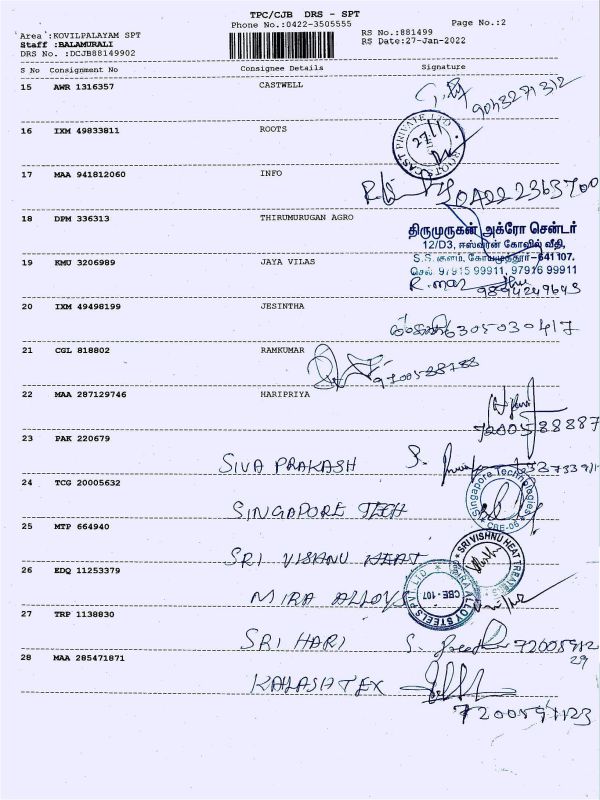 TPC/CJB DRS - SPT
Phone No.:0422-3505555
Page No.:2
Area :KOVILPALAYAM SPT
RS No.:881499
Staff :BALAMURALI
RS Date:27-Jan-2022
DRS No. :DCJB88149902
S No Consignment No Consignee Details Signature
15 AWR 1316357 CASTWELL
9043271312
16 IXM 49833811 ROOTS
ROOTS CAST PRIVATE LTD
27/1
17 MAA 941812060 INFO
0422 2363700
18 DPM 336313 THIRUMURUGAN AGRO
திருமுருகன் அக்ரோ சென்டர்
12/D3, ஈஸ்வரன் கோவில் வீதி,
S.S. குளம், கோயமுத்தூர்-641 107.
செல் 97915 99911, 97916 99911
19 KMU 3206989 JAYA VILAS
9894249643
20 IXM 49498199 JESINTHA
6305030417
21 CGL 818802 RAMKUMAR
9700588788
22 MAA 287129746 HARIPRIYA
7200588887
23 PAK 220679 SIVA PRAKASH S.
24 TCG 20005632 SINGAPORE TECH
Singapore Technologies
CBE-06
25 MTP 664940 SRI VISHNU HEAT
SRI VISHNU HEAT TREATERS
26 EDQ 11253379 MIRA ALLOYS
MIRA ALLOY STEELS PVT. LTD
CBE - 107
27 TRP 1138830 SRI HARI S.
72005912
29
28 MAA 285471871 KALASH TEX
7200591123